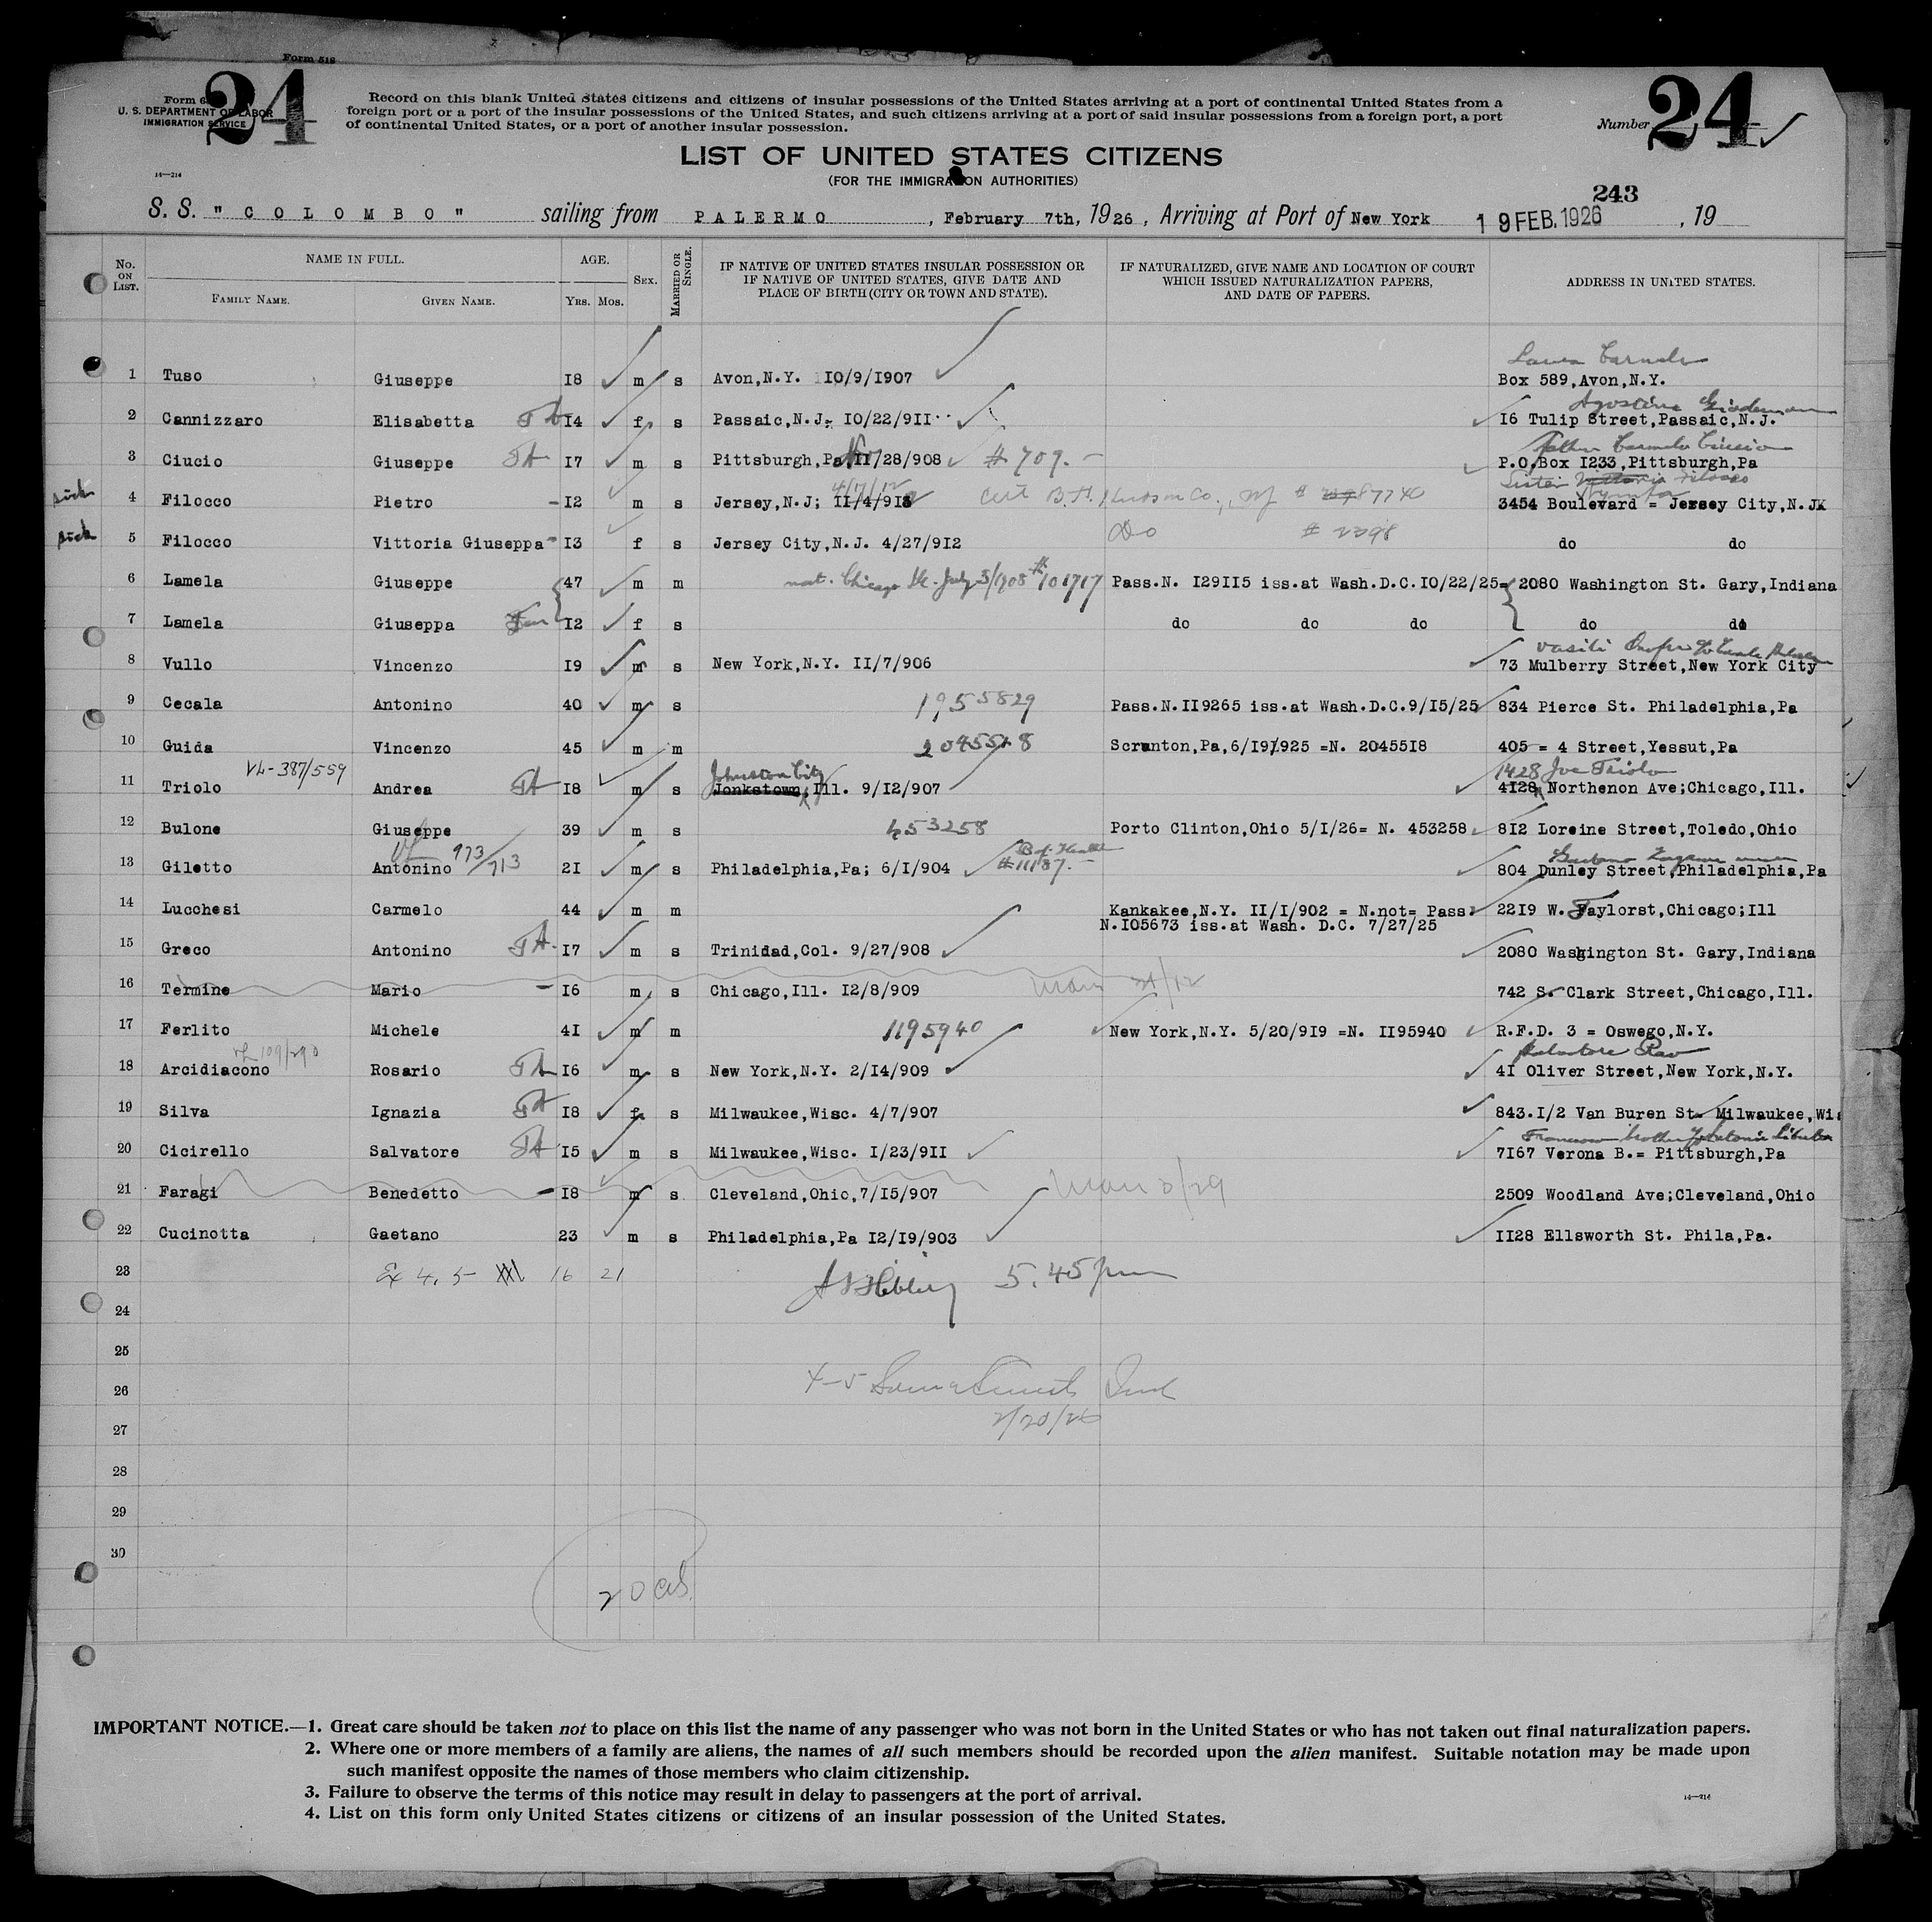 Form 518
24
24
Form 6
U. S. DEPARTMENT OF LABOR
IMMIGRATION SERVICE
Record on this blank United States citizens and citizens of insular possessions of the United States arriving at a port of continental United States from a
foreign port or a port of the insular possessions of the United States, and such citizens arriving at a port of said insular possessions from a foreign port, a port
of continental United States, or a port of another insular possession.
Number
LIST OF UNITED STATES CITIZENS
(FOR THE IMMIGRATION AUTHORITIES)
14—214
243
S. S. " C O L O M B O " sailing from P A L E R M O , February 7th, 1926 , Arriving at Port of New York 1 9 FEB. 1926 , 19
No. ON LIST. NAME IN FULL. AGE. SEX. MARRIED OR SINGLE. IF NATIVE OF UNITED STATES INSULAR POSSESSION OR IF NATIVE OF UNITED STATES, GIVE DATE AND PLACE OF BIRTH (CITY OR TOWN AND STATE). IF NATURALIZED, GIVE NAME AND LOCATION OF COURT WHICH ISSUED NATURALIZATION PAPERS, AND DATE OF PAPERS. ADDRESS IN UNITED STATES.
FAMILY NAME. GIVEN NAME. YRS. MOS.
1 Tuso Giuseppe I8 m s Avon,N.Y. IO/9/I907 Box 589,Avon,N.Y.
2 Cannizzaro Elisabetta I4 f s Passaic,N.J. IO/22/9II I6 Tulip Street,Passaic,N.J.
Father Carmelo Ciucio
3 Ciucio Giuseppe I7 m s Pittsburgh,Pa II/28/908 # 709.- P.O.Box I233,Pittsburgh,Pa
Sister Vittoria Filocco
Nymfa
4/17/12
sick 4 Filocco Pietro -I2 m s Jersey,N.J; II/4/9I3 Cert B.H. Hudson Co., NJ # 87740 3454 Boulevard = Jersey City,N.J
sick 5 Filocco Vittoria Giuseppa I3 f s Jersey City,N.J. 4/27/9I2 Do # 2398 do do
6 Lamela Giuseppe 47 m m nat. Chicago Ill. July 3/1908 #101717 Pass.N. I29II5 iss.at Wash.D.C.IO/22/25= 2080 Washington St. Gary,Indiana
7 Lamela Giuseppa I2 f s do do do do do
8 Vullo Vincenzo I9 m s New York,N.Y. II/7/906 73 Mulberry Street,New York City
9 Cecala Antonino 40 m s 1955829 Pass.N.II9265 iss.at Wash.D.C.9/I5/25 834 Pierce St. Philadelphia,Pa
10 Guida Vincenzo 45 m m 2045518 Scranton,Pa,6/I9/925 =N. 20455I8 405 = 4 Street,Yessut,Pa
VL-387/559 Johnston City 1428 Joe Triolo
11 Triolo Andrea I8 m s Jonkstown,Ill. 9/I2/907 4I28 Northenon Ave;Chicago,Ill.
12 Bulone Giuseppe 39 m s 453258 Porto Clinton,Ohio 5/I/26= N. 453258 8I2 Loreine Street,Toledo,Ohio
VL 973/713 B of Health
13 Giletto Antonino 2I m s Philadelphia,Pa; 6/I/904 #11187.- 804 Dunley Street,Philadelphia,Pa
14 Lucchesi Carmelo 44 m m Kankakee,N.Y. II/I/902 = N.not= Pass: 22I9 W. Taylorst,Chicago;Ill
N.I05673 iss.at Wash. D.C. 7/27/25
15 Greco Antonino I7 m s Trinidad,Col. 9/27/908 2080 Washington St. Gary,Indiana
16 Termine Mario -I6 m s Chicago,Ill. I2/8/909 742 S. Clark Street,Chicago,Ill.
17 Ferlito Michele 4I m m 1195940 New York,N.Y. 5/20/9I9 =N. II95940 R.F.D. 3 = Oswego,N.Y.
VL 109/290 Salvatore Rao
18 Arcidiacono Rosario I6 m s New York,N.Y. 2/I4/909 4I Oliver Street,New York,N.Y.
19 Silva Ignazia I8 f s Milwaukee,Wisc. 4/7/907 843.I/2 Van Buren St. Milwaukee,Wis
20 Cicirello Salvatore I5 m s Milwaukee,Wisc. I/23/9II 7I67 Verona B.= Pittsburgh,Pa
21 Faragi Benedetto -I8 m s Cleveland,Ohio,7/I5/907 2509 Woodland Ave;Cleveland,Ohio
22 Cucinotta Gaetano 23 m s Philadelphia,Pa I2/I9/903 II28 Ellsworth St. Phila,Pa.
23 Ex 4, 5 16 21 5.45 pm
24
25
26 4-5
27 2/20/26
28
29
30
20
IMPORTANT NOTICE.—1. Great care should be taken not to place on this list the name of any passenger who was not born in the United States or who has not taken out final naturalization papers.
2. Where one or more members of a family are aliens, the names of all such members should be recorded upon the alien manifest. Suitable notation may be made upon
such manifest opposite the names of those members who claim citizenship.
3. Failure to observe the terms of this notice may result in delay to passengers at the port of arrival.
4. List on this form only United States citizens or citizens of an insular possession of the United States.
14—214